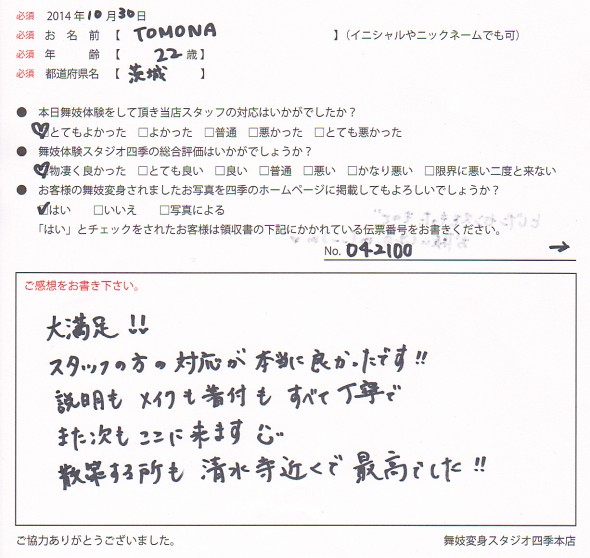 必須 2014年10月30日
必須 お名前【 TOMONA 】(イニシャルやニックネームでも可)
必須 年齢【 22歳】
必須 都道府県名【 茨城 】
● 本日舞妓体験をして頂き当店スタッフの対応はいかがでしたか?
□とてもよかった □よかった □普通 □悪かった □とても悪かった
● 舞妓体験スタジオ四季の総合評価はいかがでしょうか?
□物凄く良かった □とても良い □良い □普通 □悪い □かなり悪い □限界に悪い二度と来ない
● お客様の舞妓変身されましたお写真を四季のホームページに掲載してもよろしいでしょうか?
□はい □いいえ □写真による
「はい」とチェックをされたお客様は領収書の下記にかかれている伝票番号をお書きください。
No. 042100 →
ご感想をお書き下さい。
大満足!!
スタッフの方の対応が本当に良かったです!!
説明もメイクも着付もすべて丁寧で
また次もここに来ます
散策する所も清水寺近くで最高でした!!
ご協力ありがとうございました。 舞妓変身スタジオ四季本店